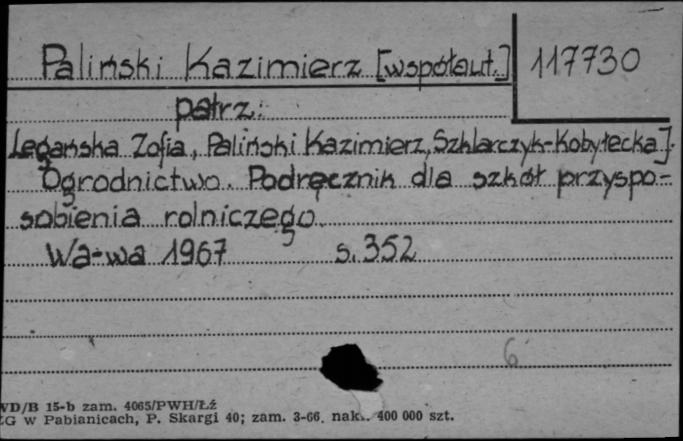 Paliński Kazimierz [współaut.] 117730
patrz:
Legańska Zofia, Paliński Kazimierz, Szklarczyk-Kobyłecka J.
Ogrodnictwo. Podręcznik dla szkół przyspo-
sobienia rolniczego.
Wa-wa 1967 s. 352
6
WD/B 15-b zam. 4065/PWH/Łź
ZG w Pabianicach, P. Skargi 40; zam. 3-66. nakł. 400 000 szt.